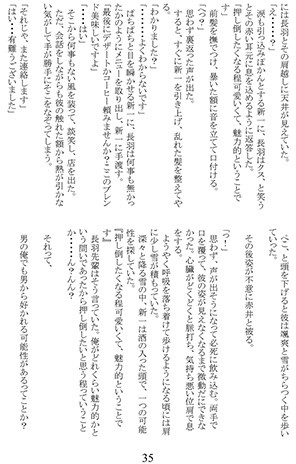 には長羽とその肩越しに天井が見えていた。
涙も引っ込みぽかんとする新一に、長羽はクス、と笑う
とその赤い耳元に息を込めるように返答した。
『押し倒したくなる程可愛いくて、魅力的ということで
す』
「え・・・・？」
前髪を撫でつけ、暴いた額に音を立てて口付ける。
「っ？」
思わず裏返った声が出た。
すると、すぐに新一を引き上げ、乱れた髪を整えてや
る。
「わかりました？」
「・・・・よくわからないです」
ぱちぱちと目を瞬かせる新一に、長羽は何事も無かっ
たかのようにメニューを取り出し、新一に手渡す。
「最後にデザートかコーヒー頼みませんか？ここのブレン
ド美味しいですよ」
「・・・・はい」
そこから何事もない風を装って、談笑し、店を出た。
ただ、会話をしながらも彼の触れた額から熱が引かな
い気がして手が勝手にそこをなぞってしまう。
「それじゃ、また連絡します」
「はい…有難うございました」
ぺこ、と頭を下げると彼は颯爽と雪がちらつく中を歩い
ていった。
その後姿が不意に赤井と被る。
「っ！」
思わず、声が出そうになって必死に飲み込む。両手で
口を覆って、彼の姿が見えなくなるまで微動だにできな
かった。心臓がどくどくと脈打ち、気持ち悪い位肩で息
をする。
ようやく呼吸を落ち着けて歩けるようになる頃には肩
に少々雪が積もっていた。
深々と降る雪の中、新一は酒の入った頭で、一つの可能
性を探していた。
『押し倒したくなる程可愛いくて、魅力的ということで
す』
長羽先輩はそう言っていた。俺がどれくらい魅力的かと
いう問いであったから押し倒したいと思う程っていうこと
か・・・・ん？んん？
それって、
男の俺でも男から好かれる可能性があるってことか？
35